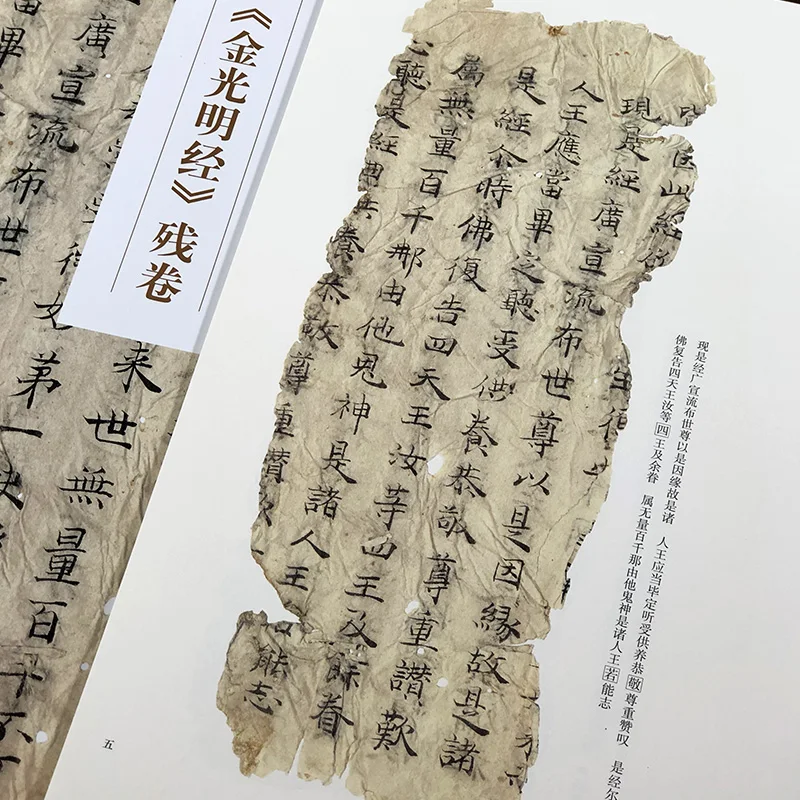 《金光明经》残卷
因此經欲
現是經廣宣流布世尊以是因緣故是諸
人王應當畢定聽受供養恭敬尊重讚歎
是經尒時佛復告四天王汝等四王及餘眷
屬無量百千那由他鬼神是諸人王能志
心聽是經典供養恭敬尊重讚歎
现是经广宣流布世尊以是因缘故是诸 人王应当毕定听受供养恭敬尊重赞叹 是经尔
佛复告四天王汝等四王及余眷 属无量百千那由他鬼神是诸人王若能志
五
來世無量百千
廣宣流布世
第一